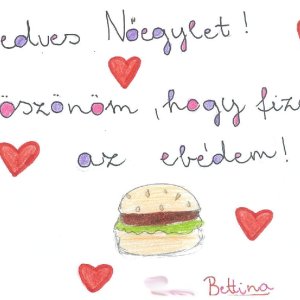 edves Nőegylet!
öszönöm, hogy fize
az ebédem!
Bettina